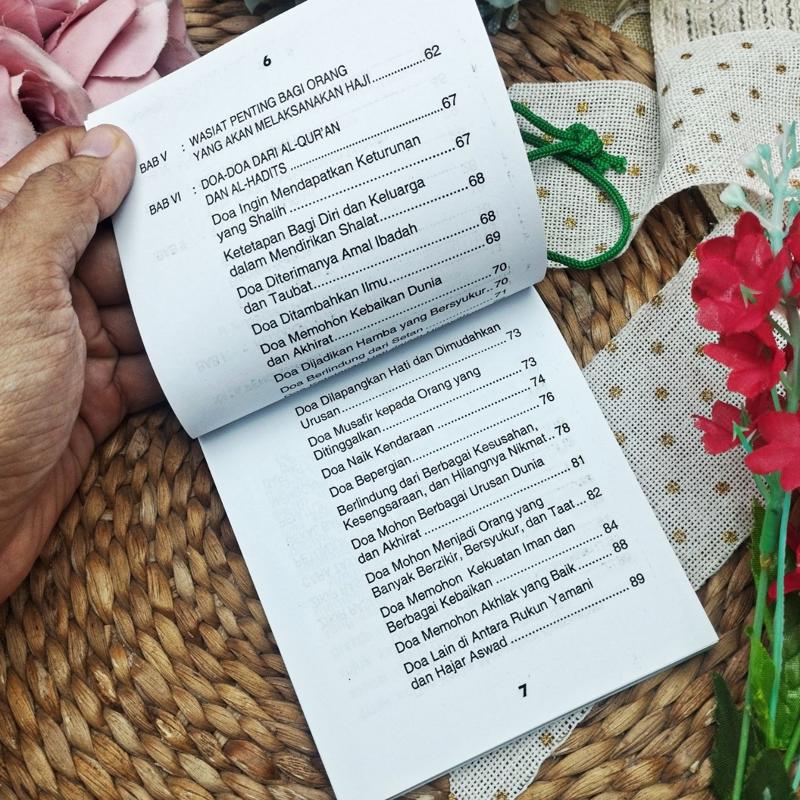 6
BAB V : WASIAT PENTING BAGI ORANG
YANG AKAN MELAKSANAKAN HAJI..............62
BAB VI : DOA-DOA DARI AL-QUR'AN
DAN AL-HADITS.......................................67
Doa Ingin Mendapatkan Keturunan
yang Shalih.............................................67
Ketetapan Bagi Diri dan Keluarga
dalam Mendirikan Shalat.......................68
Doa Diterimanya Amal Ibadah
dan Taubat.............................................68
Doa Ditambahkan Ilmu..........................69
Doa Memohon Kebaikan Dunia
dan Akhirat............................................70
Doa Dijadikan Hamba yang Bersyukur..70
Doa Berlindung dari Setan ...................71
Doa Dilapangkan Hati dan Dimudahkan
Urusan...................................................73
Doa Musafir kepada Orang yang
Ditinggalkan..........................................73
Doa Naik Kendaraan ............................74
Doa Bepergian......................................76
Berlindung dari Berbagai Kesusahan,
Kesengsaraan, dan Hilangnya Nikmat..78
Doa Mohon Berbagai Urusan Dunia
dan Akhirat ...........................................81
Doa Mohon Menjadi Orang yang
Banyak Berzikir, Bersyukur, dan Taat...82
Doa Memohon Kekuatan Iman dan
Berbagai Kebaikan ...............................84
Doa Memohon Akhlak yang Baik..........88
Doa Lain di Antara Rukun Yamani
dan Hajar Aswad ..................................89
7